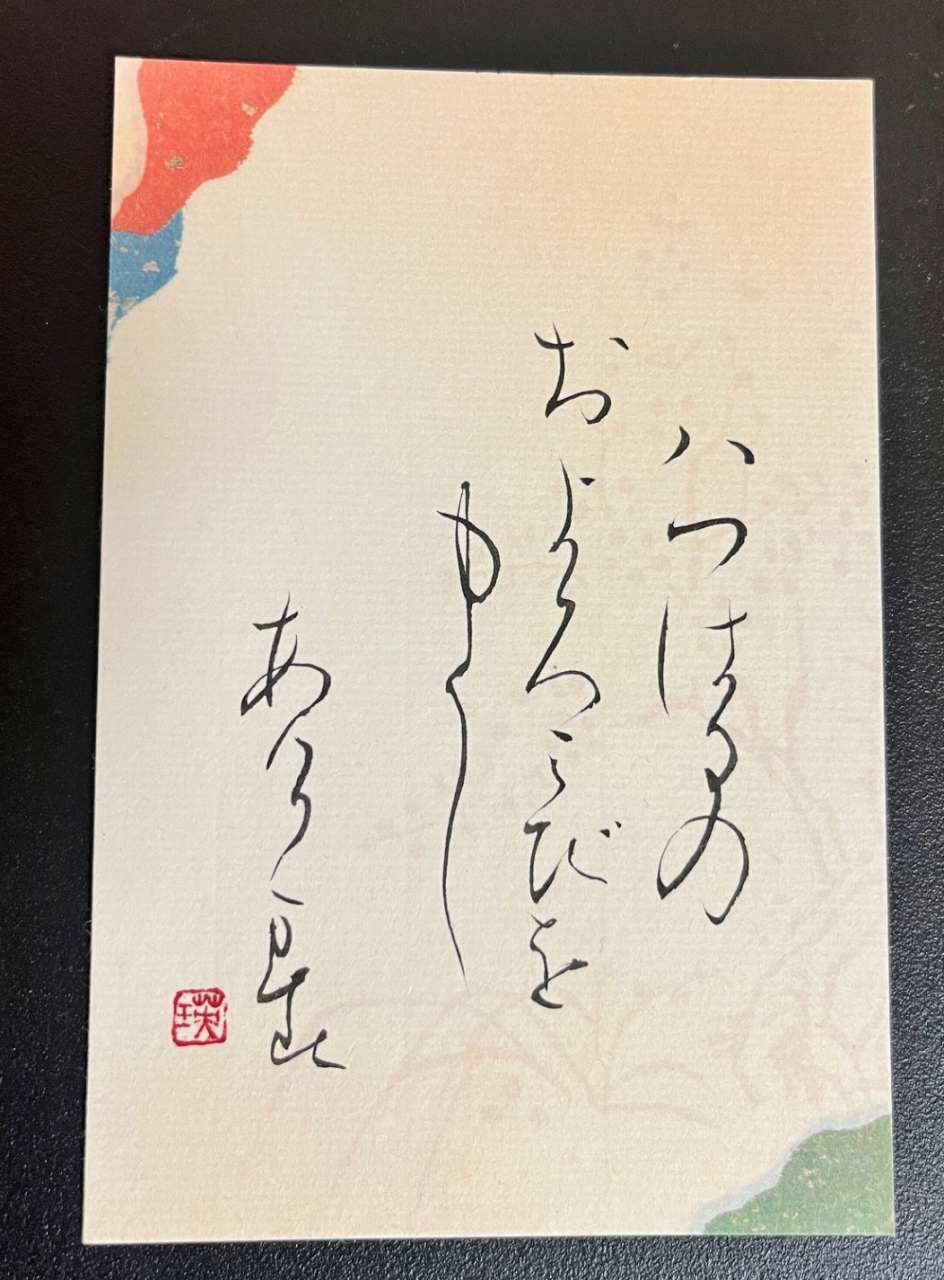 はつはるの
およろこびを
申し
あげます
瑛